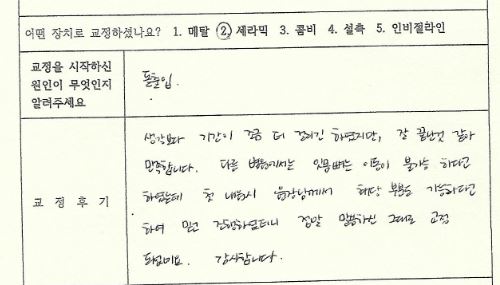 어떤 장치로 교정하셨나요? 1. 메탈 ② 세라믹 3. 콤비 4. 설측 5. 인비절라인
교정을 시작하신
원인이 무엇인지
알려주세요
돌출입.
교 정 후 기
생각보다 기간이 조금 더 걸리긴 하였지만, 잘 끝난것 같아
만족합니다. 다른 병원에서는 잇몸뼈는 이동이 불가능 하다고
하였는데 첫 내원시 원장님께서 해당 부분도 가능하다고
하여 믿고 진행하였더니 정말 말씀하신 그대로 교정
되었네요. 감사합니다.